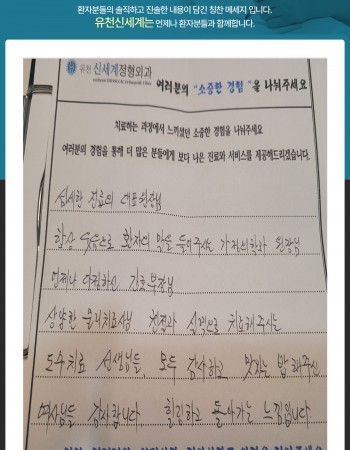 환자분들의 솔직하고 진솔한 내용이 담긴 칭찬 메세지 입니다.
유천신세계는 언제나 환자분들과 함께합니다.
유천 신세계정형외과
여러분의 "소중한 경험"을 나눠주세요
치료하는 과정에서 느끼셨던 소중한 경험을 나눠주세요
여러분의 경험을 통해 더 많은 분들에게 보다 나은 진료와 서비스를 제공해드리겠습니다.
섬세한 진료의 대표원장님
항상 웃음으로 환자의 말을 들어주시는 가정의학과 원장님
언제나 다정하신 간호부장님
상냥한 물리치료사님 친절과 실력으로 치료해주시는
도수치료 선생님들, 모두 감사하고 맛있는 밥 해주신
여사님들 감사합니다. 힐링하고 돌아가는 느낌입니다.